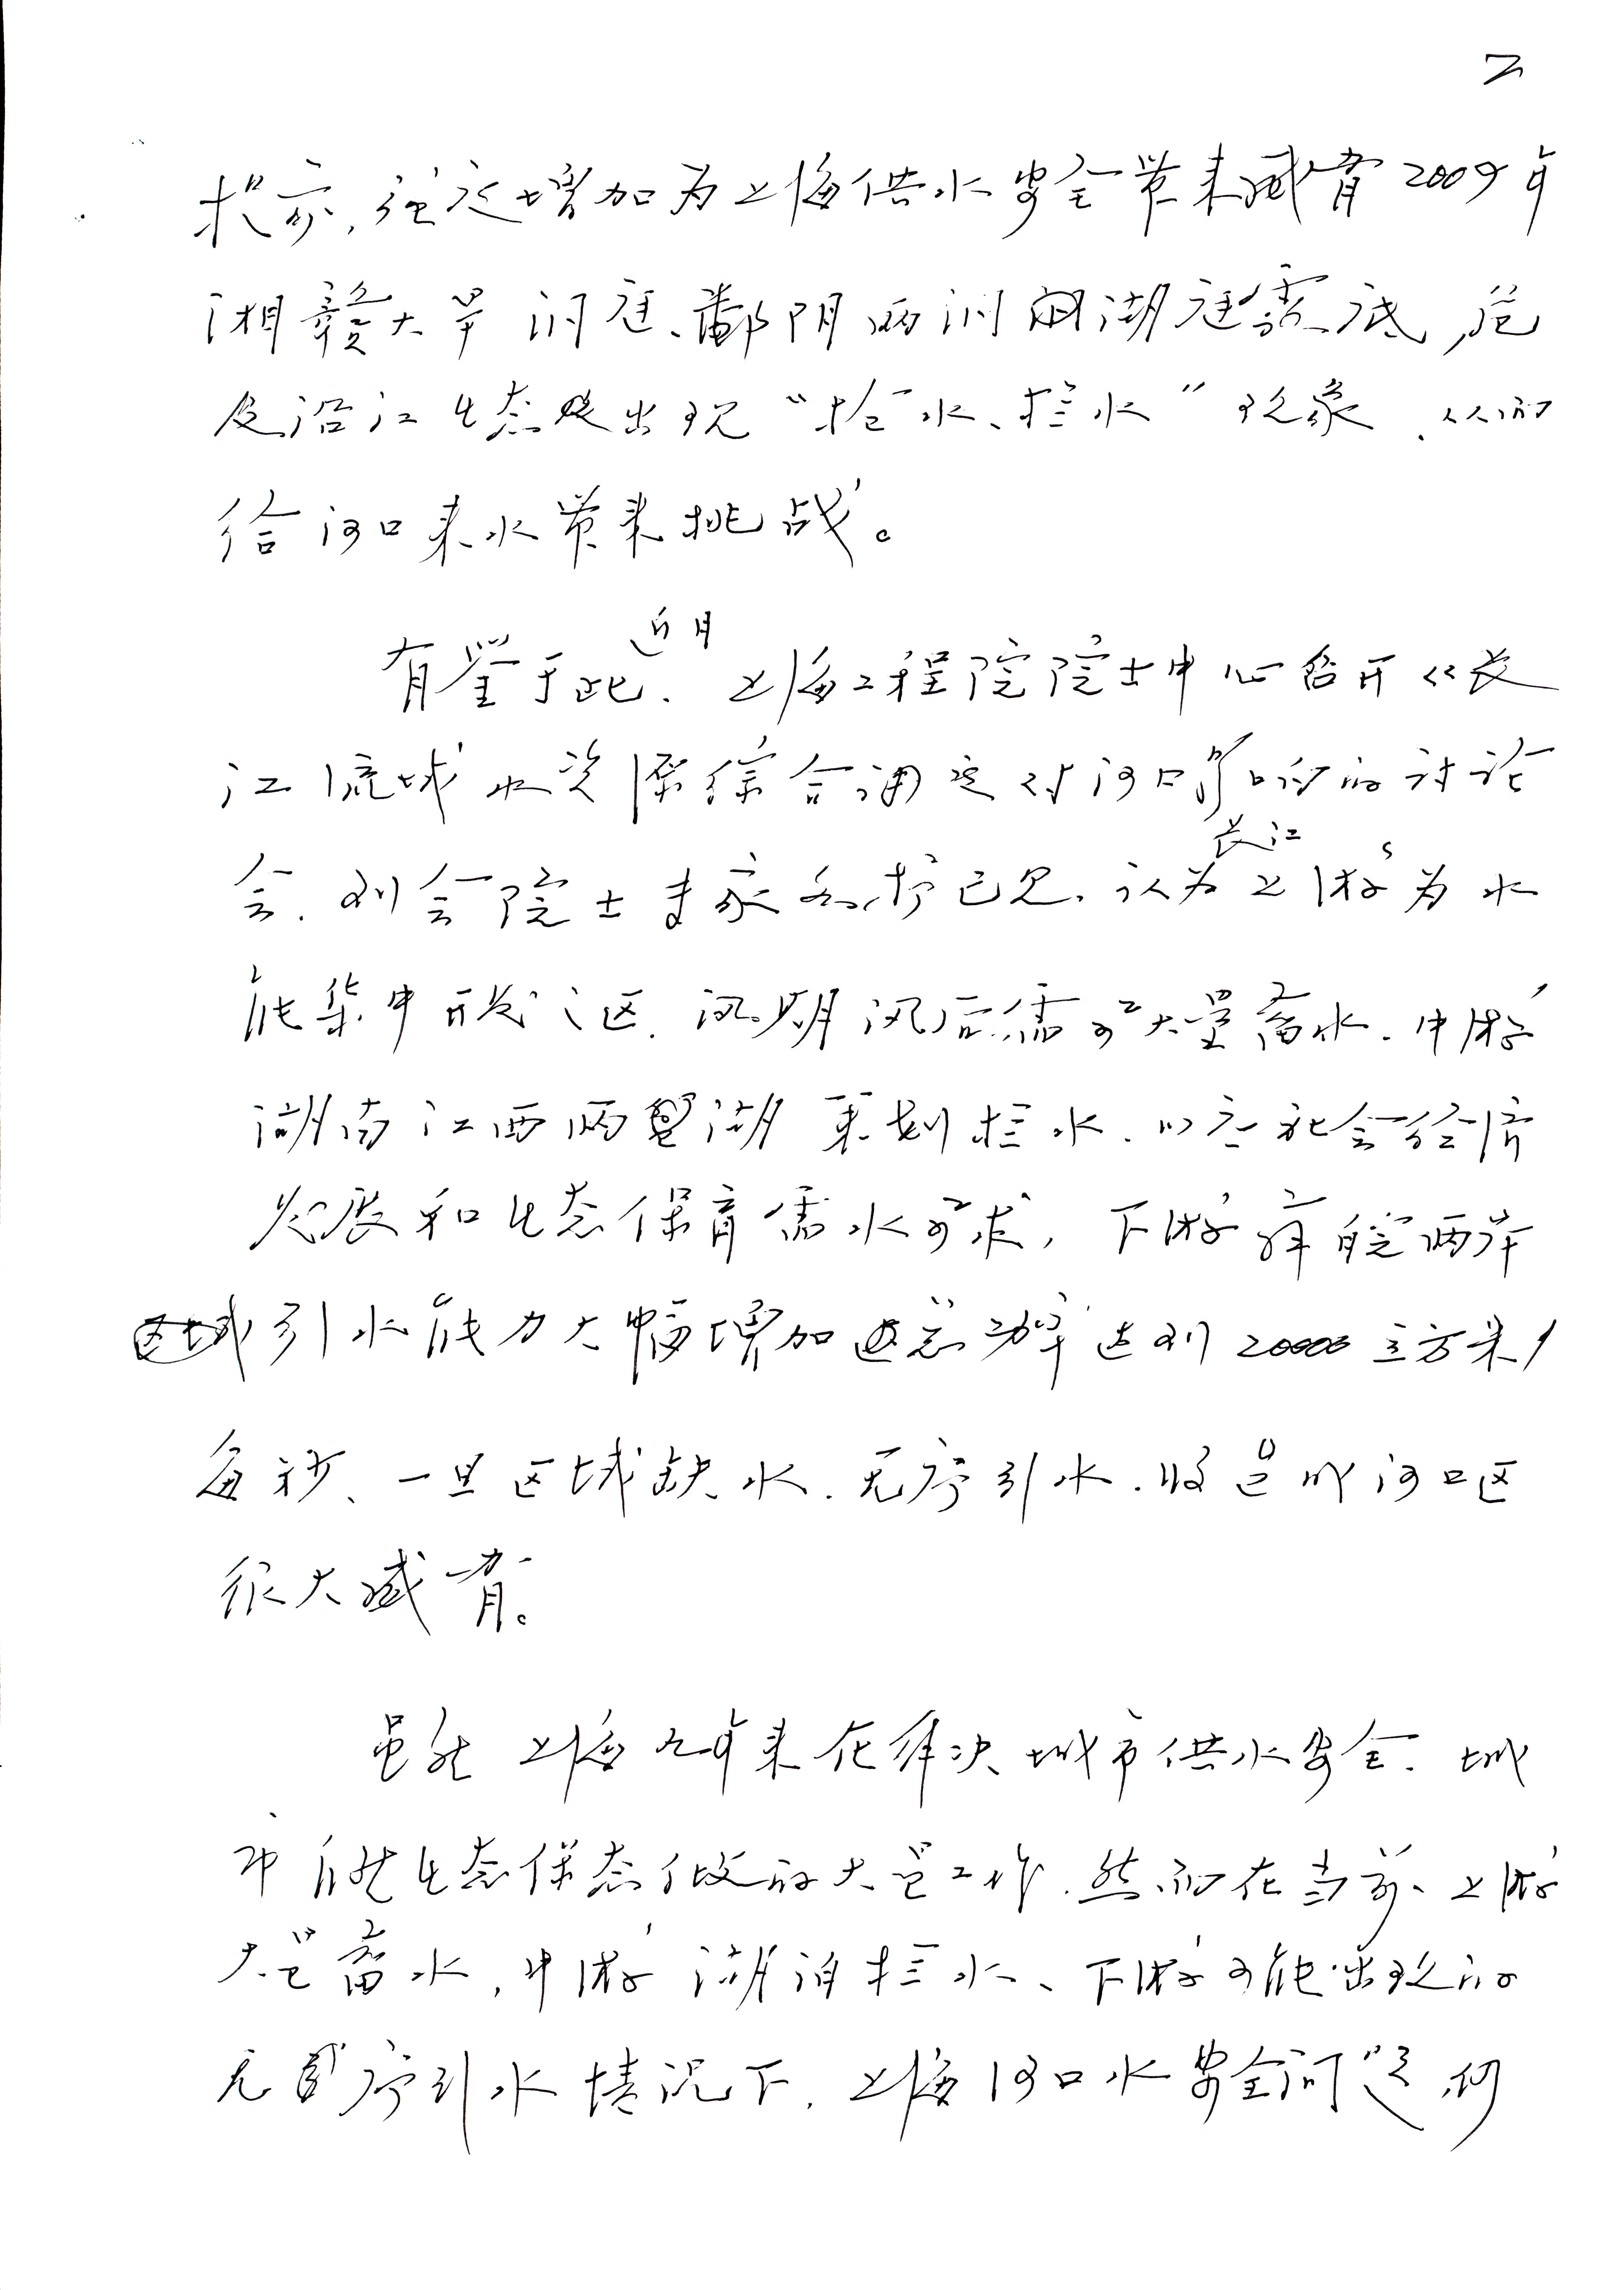 2
提示,强度增加为上海供水安全带来威胁2009年
湘赣大旱洞庭、鄱阳两湖湖底露底,危
及沿江生态及出现“抢水、拦水”现象,从而
给河口来水带来挑战。
有鉴于此,近月上海工程院院士中心召开《长
江流域水资源综合调度对河口影响的讨论
会,到会院士专家各抒己见,认为长江上游为水
能集中开发区,汛期汛后需要大量蓄水,中游
湖南江西两省湖 策划拦水,以应社会经济
发展和生态保育需水要求,下游 皖两岸
区域引水能力大幅增加总功率达到20000立方米/
每秒、一旦区域缺水,无序引水,将造成河口区
很大威胁。
虽然上海几年来在解决城市供水安全,城
市 生态保态做的大量工作,然而在当前、上游
大量蓄水,中游湖泊拦水、下游可能出现的
无序引水情况下,上海河口水安全问题,仍